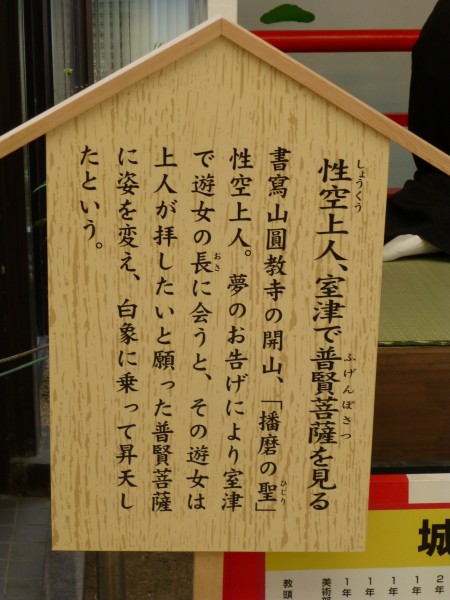 性空上人、室津で普賢菩薩を見る
しょうくう
ふげんぼさつ
書寫山圓教寺の開山、「播磨の聖」
ひじり
性空上人。夢のお告げにより室津
で遊女の長に会うと、その遊女は
おさ
上人が拝したいと願った普賢菩薩
に姿を変え、白象に乗って昇天し
たという。
城
2年
1年
1年
1年
1年
美術部
教頭